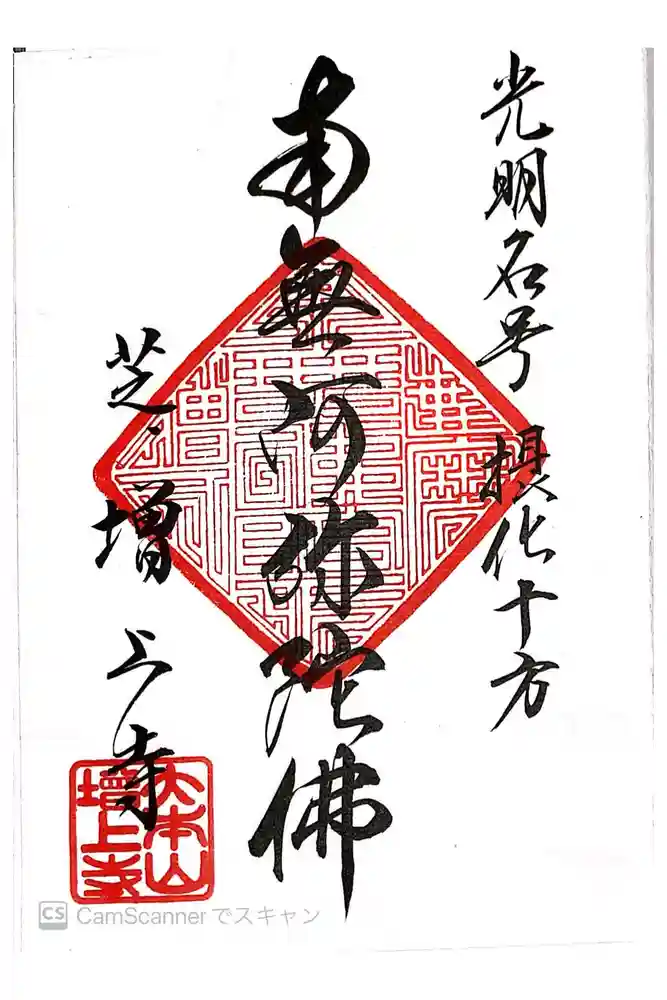 光明名号 摂化十方
南無阿弥陀佛
芝・増上寺
大本山
増上寺
CS CamScanner でスキャン